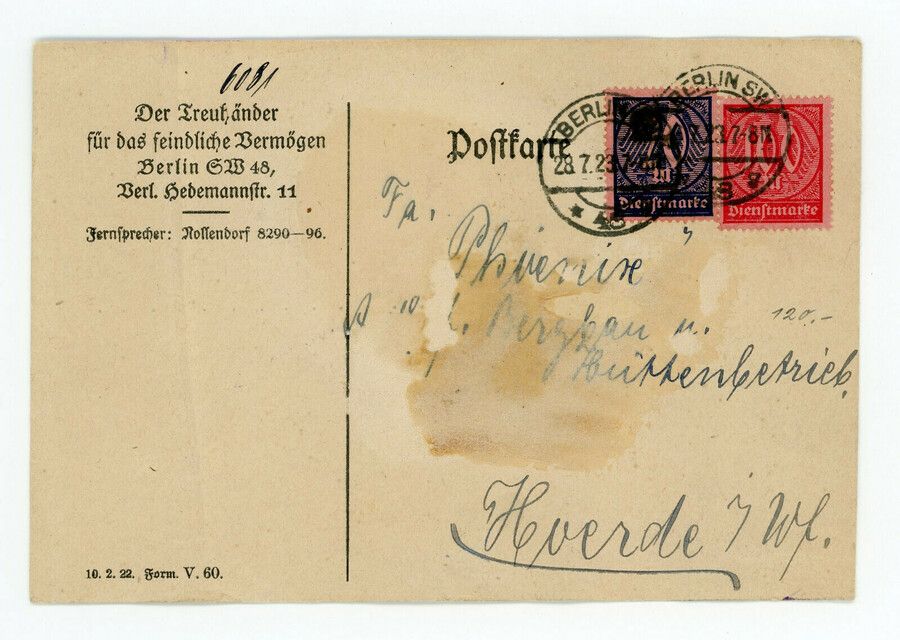 6091
Der Treuhänder
für das feindliche Vermögen
Berlin SW 48,
Verl. Hedemannstr. 11
Fernsprecher: Nollendorf 8290—96.
10. 2. 22. Form. V. 60.
Postkarte
BERLIN
28.7.23.7-8N
* 48
BERLIN SW
23.7-8N
Dienstmarke
Dienstmarke
Fa.
"Phoenix"
Bergbau u.
Hüttenbetrieb
120.-
Hoerde i/Wf.